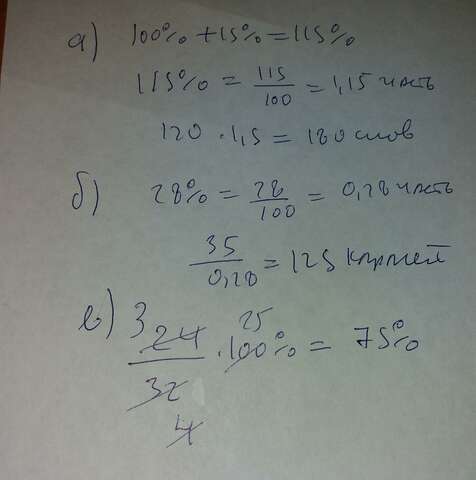 а) 100% + 15% = 115%
115% = 115/100 = 1,15 часть
120 · 1,5 = 180 слов
б) 28% = 28/100 = 0,28 часть
35/0,28 = 125
в) 3 24/32 4 · 100% 25 = 75%